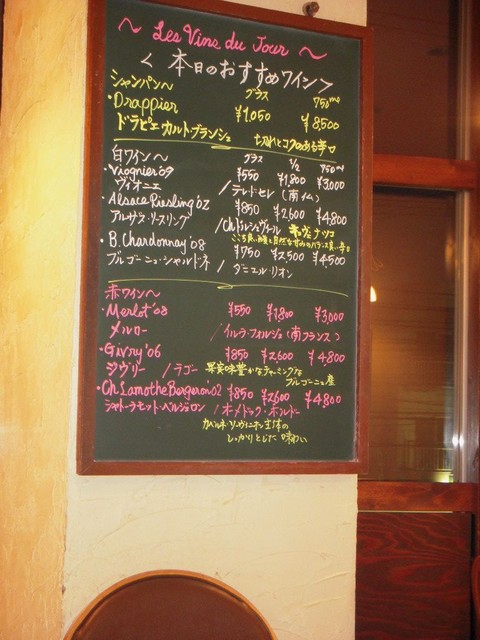 ~ Les Vins du Jour ~
<本日のおすすめワイン>
シャンパン~ グラス 750ml
・Drappier ¥1,050 ¥8,500
ドラピエ カルト・ブランシュ 切れとコクのある辛口
白ワイン~ グラス 1/2 750ml
・Viognier'09 ¥550 ¥1,800 ¥3,000
ヴィオニエ /テレ・ド・セレ(南仏)
・Alsace Riesling'02 ¥850 ¥2,600 ¥4,800
アルザス・リースリング
・B. Chardonnay'08 ¥750 ¥2,500 ¥4,500
ブルゴーニュ・シャルドネ / ダニエル・リオン
赤ワイン~
・Merlot'08 ¥550 ¥1,800 ¥3,000
メルロー /イル・ラ・フォルジュ(南フランス)
・Givry'06 ¥850 ¥2,600 ¥4800
ジヴリー /ラゴー 果実味豊かなチャーミングな
ブルゴーニュ産
・Ch. Lamothe Bergeron'02 ¥850 ¥2600 ¥4,800
シャトー・ラモット・ベルジュロン /オー・メドック・ボルドー
カベルネ・ソーヴィニオン主体の
しっかりとした味わい